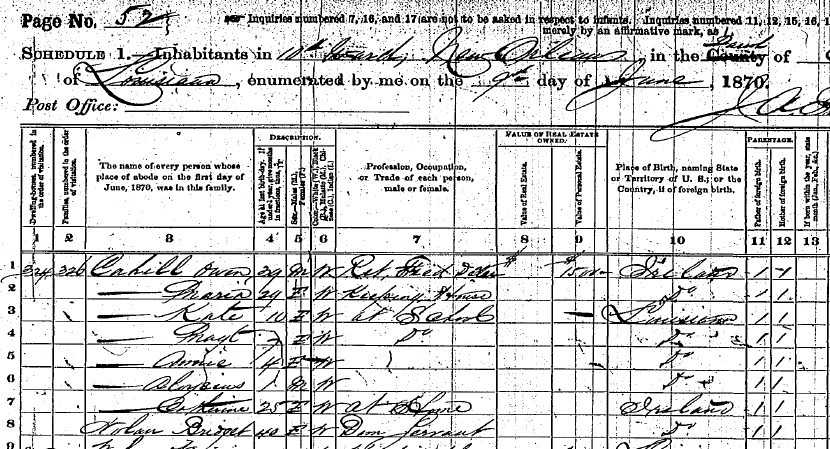 Page No. 52
Inquiries numbered 7, 16, and 17 are not to be asked in respect to infants. Inquiries numbered 11, 12, 15, 16, 1
merely by an affirmative mark, as /
SCHEDULE 1.—Inhabitants in 10th Ward, New Orleans, in the County of
of Louisiana, enumerated by me on the 9th day of June, 1870.
Post Office:
Dwelling-houses, numbered in the order of visitation.
Families, numbered in the order of visitation.
The name of every person whose place of abode on the first day of June, 1870, was in this family.
DESCRIPTION.
Age at last birth-day. If under 1 year, give months in fractions, thus,
Sex.—Males (M.), Females (F.)
Color.—White (W.), Black (B.), Mulatto (M.), Chinese (C.), Indian (I.)
Profession, Occupation, or Trade of each person, male or female.
VALUE OF REAL ESTATE OWNED.
Value of Real Estate.
Value of Personal Estate.
Place of Birth, naming State or Territory of U. S.; or the Country, if of foreign birth.
PARENTAGE.
Father of foreign birth.
Mother of foreign birth.
If born within the year, state month (Jan., Feb., &c.)
1 2 3 4 5 6 7 8 9 10 11 12 13
1 324 326 Cahill Owen 39 M W Ret. $ $ 1500 Ireland 1 1
2 — Maria 29 F W Keeping House Do 1 1
3 — Kate 10 F W at School — Louisiana 1 1
4 — Magt 7 F W Do Do 1 1
5 — Annie 4 F W Do 1 1
6 — Aloysius 1 M W Do 1 1
7 — Catherine 25 F W at Home Ireland 1 1
8 Nolan Bridget 40 F W Dom Servant Do 1 1
9